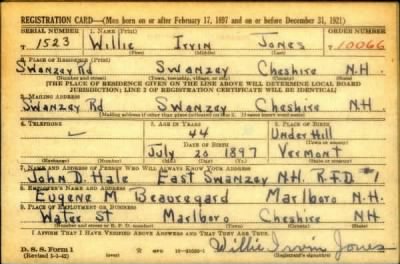 REGISTRATION CARD—(Men born on or after February 17, 1897 and on or before December 31, 1921)
SERIAL NUMBER 1. NAME (Print) ORDER NUMBER
T 1523 Willie Irvin Jones T 10066
(First) (Middle) (Last)
2. PLACE OF RESIDENCE (Print)
Swanzey Rd Swanzey Cheshire N.H.
(Number and street) (Town, township, village, or city) (County) (State)
[THE PLACE OF RESIDENCE GIVEN ON THE LINE ABOVE WILL DETERMINE LOCAL BOARD
JURISDICTION; LINE 2 OF REGISTRATION CERTIFICATE WILL BE IDENTICAL]
3. MAILING ADDRESS
Swanzey Rd Swanzey Cheshire N.H.
(Mailing address if other than place indicated on line 2. If same insert word same)
4. TELEPHONE 5. AGE IN YEARS 6. PLACE OF BIRTH
44 Under Hill
DATE OF BIRTH (Town or county)
July 20 1897 Vermont
(Exchange) (Number) (Mo.) (Day) (Yr.) (State or country)
7. NAME AND ADDRESS OF PERSON WHO WILL ALWAYS KNOW YOUR ADDRESS
John D. Hale East Swanzey N.H. R.F.D #1
8. EMPLOYER'S NAME AND ADDRESS
Eugene M Beauregard Marlboro N.H.
9. PLACE OF EMPLOYMENT OR BUSINESS
Water St Marlboro Cheshire N.H.
(Number and street or R. F. D. number) (Town) (County) (State)
I AFFIRM THAT I HAVE VERIFIED ABOVE ANSWERS AND THAT THEY ARE TRUE.
D. S. S. Form 1 Willie Irvin Jones
(Registrant's signature)